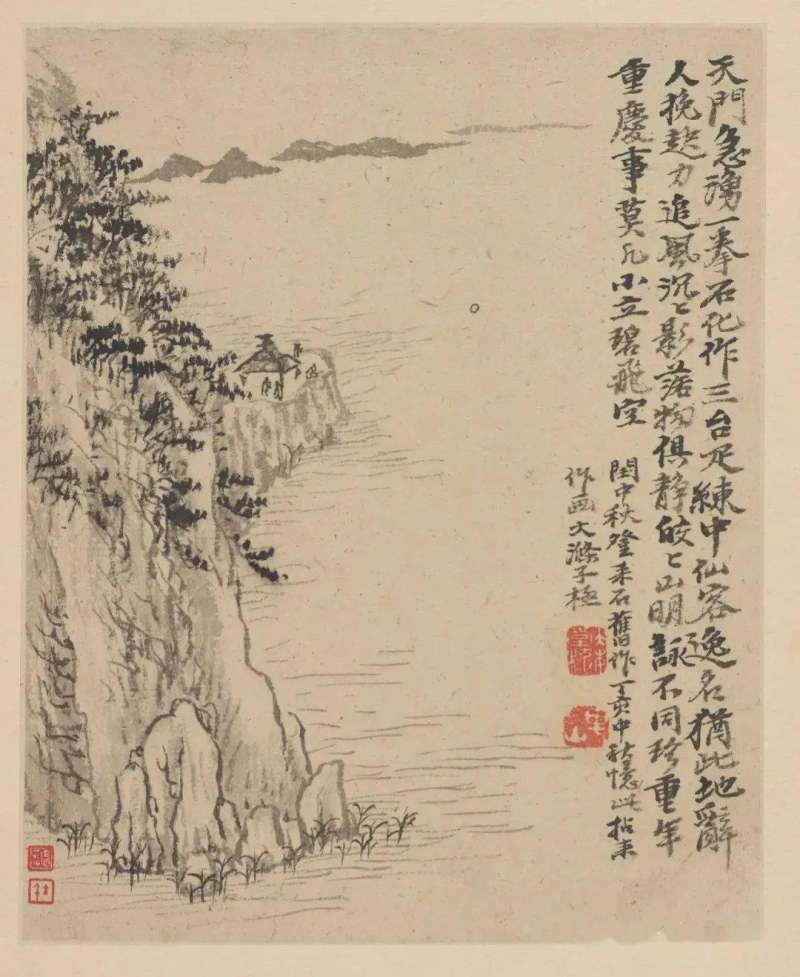 天門急湧一拳石化作三台疋練中仙客逸名猶此地辭
人挽起力追風沉〻影落物俱静皎〻山明詠不同珍重年
重慶事莫凡小立碧飛空
閏中秋登采石舊作丁亥中秋憶此拈來
作画大滌子極